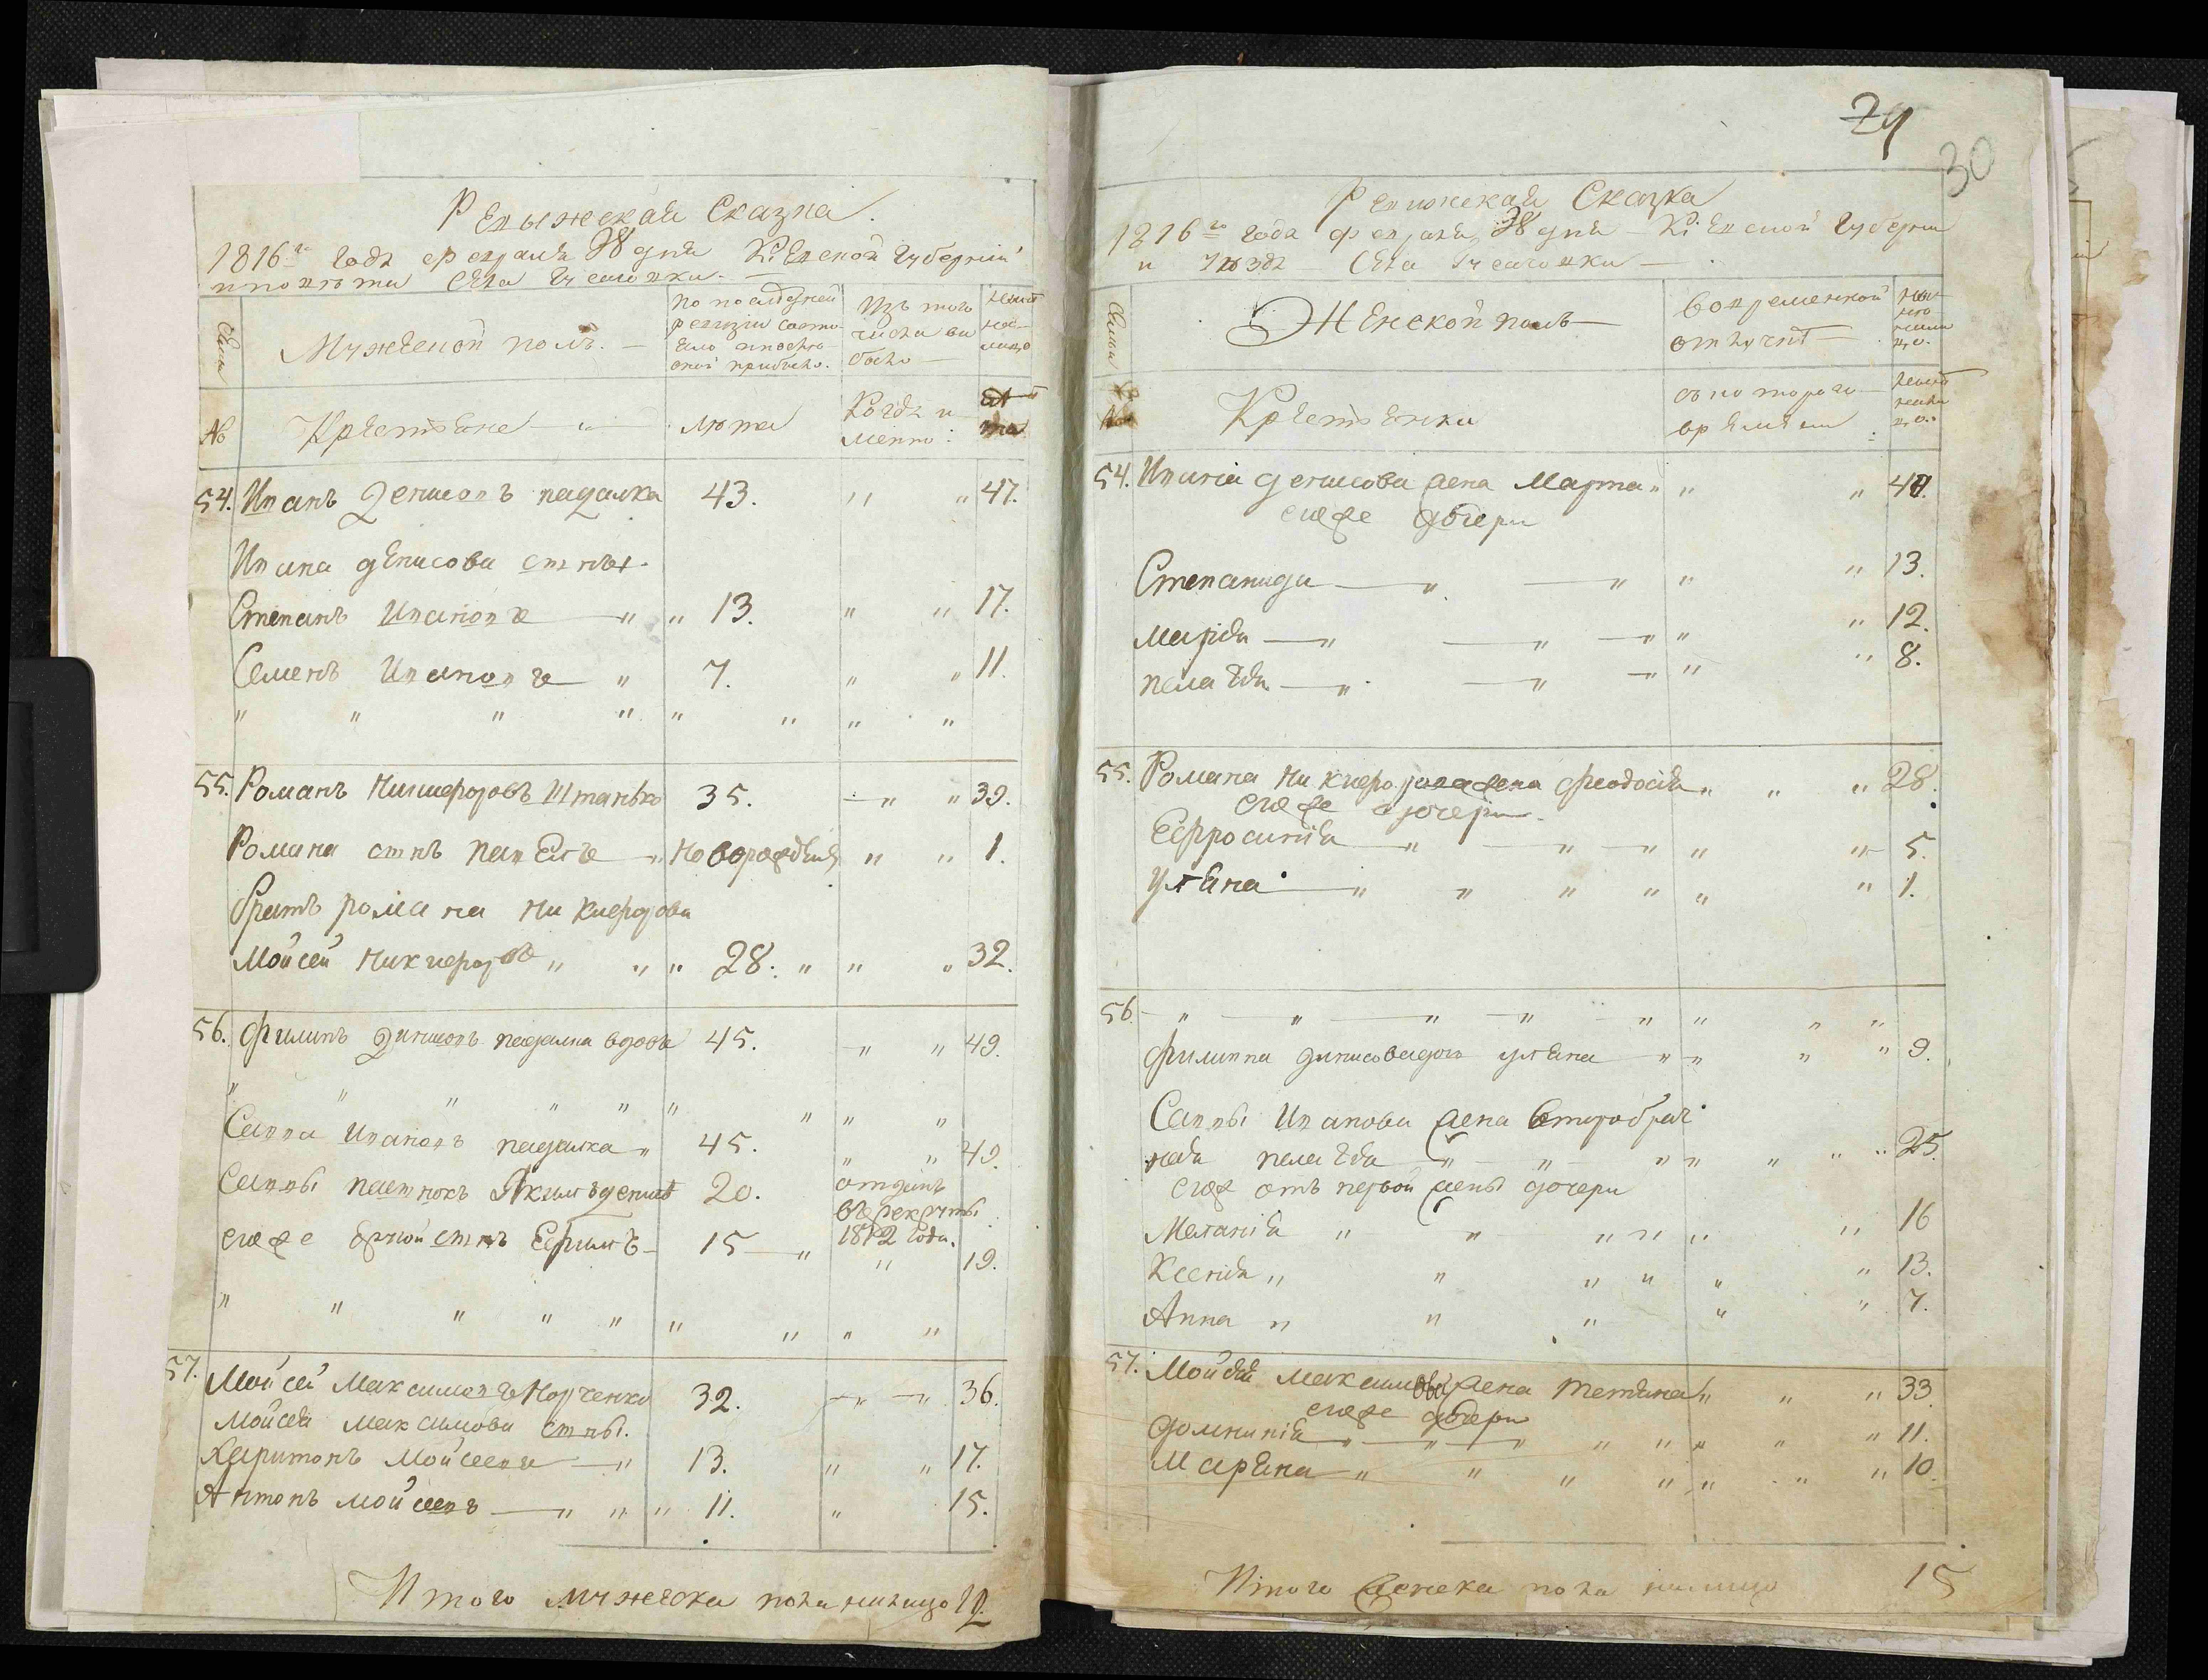 Ревыжская Сказка.
1816го года февраля 28 дня Кіевской Губерніи
и повѣта Села Гусачовки.
Семьи
Мужеской полъ.
По последней
ревизіи состо-
яло и после
оной прибыло.
Изъ того
числа вы
было
ныне
на-
лицо
№
Крестьяне
лѣта
Когда и
менно:
лѣта
54. Иванъ Денисовъ падалка 43. 47.
Ивана денисова сыны.
Степанъ Ивановъ 13. 17.
Семенъ Ивановъ 7. 11.
55. Романъ Никифоровъ Штанько 35. 39.
Романа сынъ Павелъ новорожденъ 1.
братъ романа Никифорова
Мойсей Никифоровъ 28. 32.
56. Филипъ Динисовъ падалка вдовъ 45. 49.
Савва Ивановъ падалка 45. 49.
Саввы пасынокъ Якимъ денисовъ 20. отданъ
въ рекруты
1812 года.
егоже другой сынъ Ефимъ 15 19.
57. Мойсей Максимовъ Норченко 32. 36.
Мойсея максимова сыны.
Харитонъ Мойсеевъ 13. 17.
Антонъ Мойсеевъ 11. 15.
Итого мужеска пола налицо 12.
29
30
Ревижская Сказка
1816го года февраля 28 дня Кіевской Губерніи
и Уезда Села Гусачовки
Семьи
Женской полъ
Вовременной
отлучкѣ
ны-
не
нали
цо.
№
Крестьянки
съ котораго
времени
ныне
нали
цо.
54. Ивана денисова жена Марта 40.
егоже дочери
Степанида 13.
Марія 12.
пелагѣя 8.
55. Романа Никифорова жена феодосія 28.
егоже дочери
Ефросинія 5.
Уляна 1.
56.
Филиппа динисова дочь уляна 9.
Саввы Иванова жена второбрач
ная пелагѣя 25.
егож отъ первой жены дочери
Меланія 16
Ксенія 13.
Анна 7.
57. Мойсея максимова жена Тетяна 33
егоже дочери
Домникія 11.
Маряна 10.
Итого Женска пола налицо 15